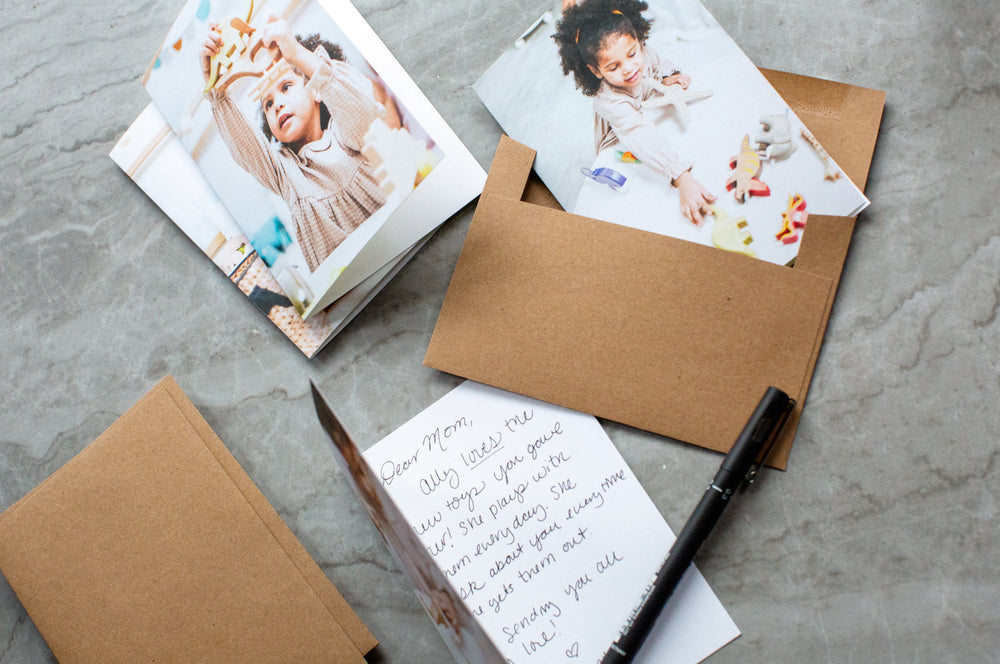 Dear Mom,
Ally loves the
ew toys you gave
er! She plays with
hem everyday. She
sk about you everytime
e gets them out.
Sending you all
love!
♡